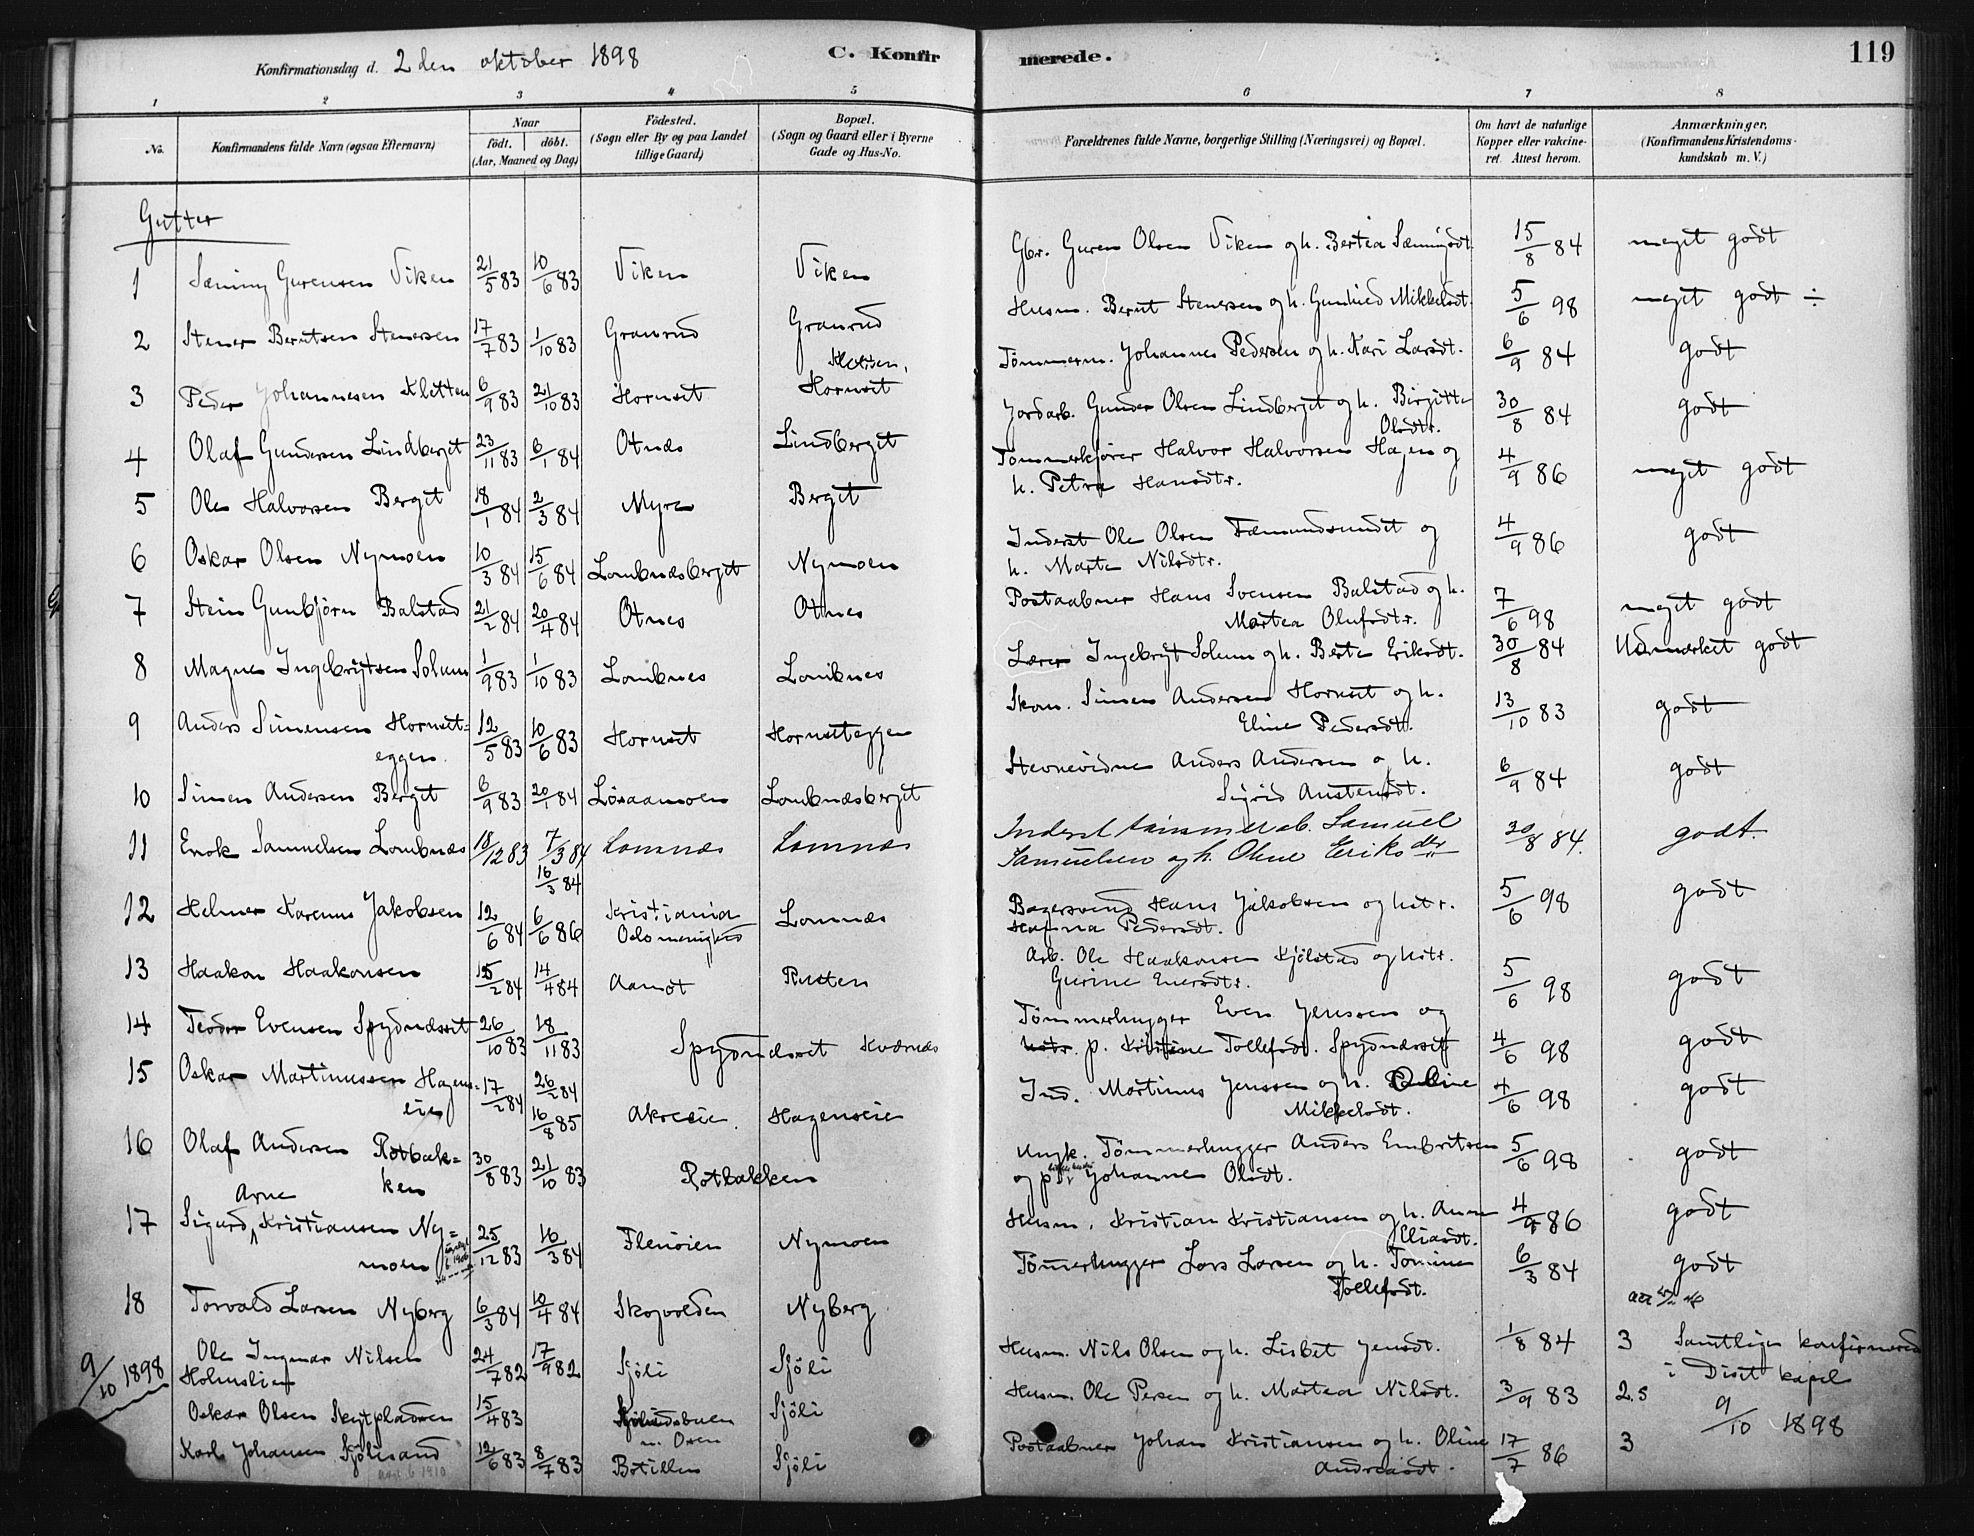 Konfirmationsdag d. 2 den oktober 1898
C. Konfirmerede.
119
1 2 3 4 5 6 7 8
No.
Konfirmandens fulde Navn (ogsaa Efternavn)
Naar
födt. döbt.
(Aar, Maaned og Dag)
Födested.
(Sogn eller By og paa Landet tillige Gaard)
Bopæl.
(Sogn og Gaard eller i Byerne Gade og Hus-No.
Forældrenes fulde Navne, borgerlige Stilling (Næringsvei) og Bopæl.
Om havt de naturlige Kopper eller vakcineret. Attest herom.
Anmærkninger.
(Konfirmandens Kristendomskundskab m. V.)
Gutter
1 Sæming Gurensen Viken 21/5 83 10/6 83 Viken Viken Gbr. Guren Olsen Viken og h. Bertea Sæmingsdt. 15/8 84 meget godt
2 Stener Berntsen Stenersen 17/7 83 1/10 83 Granrud Granrud Husm. Bernt Stenersen og h. Gunhild Mikkelsdt. 5/6 98 meget godt ÷
3 Peder Johannesen Kletten 6/9 83 21/10 83 Hornset Kletten, Hornset Tømmerm. Johannes Pedersen og h. Kari Larsdt. 6/9 84 godt
4 Olaf Gundersen Lindberget 23/11 83 6/1 84 Otnæs Lindberget Jordarb. Gunder Olsen Lindberget og h. Birgitte Olsdtr. 30/8 84 godt
5 Ole Halvorsen Berget 18/1 84 2/3 84 Myre Berget Tømmerkjører Halvor Halvorsen Hagen og h. Petra Hansdtr. 4/9 86 meget godt
6 Oskar Olsen Nymoen 10/3 84 15/6 84 Lombnæsberget Nymoen Inderst Ole Olsen Fæmundsundet og h. Marte Nilsdtr. 4/9 86 godt
7 Stein Gunbjörn Balstad 21/2 84 20/4 84 Otnes Otnes Postaabner Hans Svensen Balstad og h. Martea Olufsdtr. 7/6 98 meget godt
8 Magnus Ingebrigtsen Solum 1/9 83 1/10 83 Lombnes Lombnes Lærer Ingebrigt Solum og h. Berte Eriksdt. 30/8 84 Udmerket godt
9 Anders Simensen Hornset=eggen 12/5 83 10/6 83 Hornset Hornseteggen Skom. Simen Andersen Hornset og h. Eline Pedersdt. 13/10 83 godt
10 Simen Andersen Berget 6/9 83 20/1 84 Løsaamoen Lombnæsberget Stevnevidne Anders Andersen og h. Sigrid Austensdt. 6/9 84 godt
11 Enok Samuelsen Lombnæs 18/12 83 7/3 84 16/3 84 Lomnæs Lomnæs Inderst tømmerarb. Samuel Samuelsen og h. Oline Eriksdtr 30/8 84. godt.
12 Helmer Karenus Jakobsen 12/6 84 6/6 86 Kristiania Oslo menighed Lomnæs Bagersvend Hans Jakobsen og hstr. Hafna Pedersdt. 5/6 98 godt
13 Haakon Haakonsen 15/2 84 14/4 84 Aamot Rusten Arb. Ole Haakonsen Kjölstad og hstr. Gurine Enersdtr. 5/6 98 godt
14 Teodor Evensen Spydnæsset 26/10 83 18/11 83 Spydnæsset Kværnæs Tømmerhugger Even Jenssen og hstr. p. Kristine Tollefsdt. Spydnæsset 4/6 98 godt
15 Oskar Martinussen Hagens=eie 17/2 84 26/2 84 16/8 85 Akreeie. Hagenseie Ind. Martinus Jenssen og h. Oline Mikkelsdt. 4/6 98 godt
16 Olaf Andersen Rotbæk=ken 30/8 83 21/10 83 Rotbækken Ungk. Tømmerhugger Anders Embritsen og p. Johanne Olsdt. 5/6 98 godt
17 Sigurd Arne Kristiansen Ny=moen 25/12 83 16/3 84 Flenöien Nymoen Husm. Kristian Kristiansen og h. Anne Eliasdt. 4/9 86 godt
18 Torvald Larsen Nyberg 6/3 84 10/4 84 Skogvolden Nyberg Tömmerhugger Lars Larsen og h. Tomine Tollefsdt. 6/3 84 godt
9/10 1898 Ole Ingmar Nilsen Holmslien 24/7 82 17/9 82 Sjöli Sjöli Husm. Nils Olsen og h. Lisbet Jensdt. 1/8 84 3 Samtlige konfirmered i Diset kapel 9/10 1898
Oskar Olsen Skytpladsen 15/4 83 Sjöli Husm. Ole Persen og h. Martea Nilsdt. 3/9 83 2.5
Karl Johansen Sjölisand 12/6 83 8/7 83 Bötillen Sjöli Postaabner Johan Kristiansen og h. Oline Andreasdt. 17/7 86 3